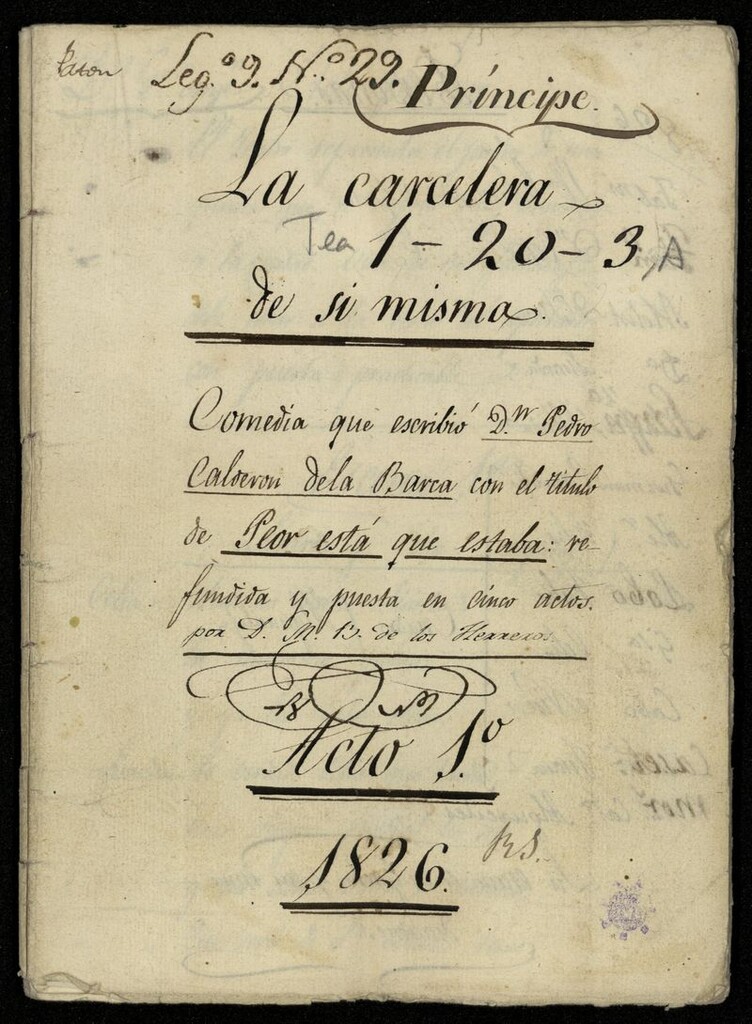 Leg.º 9. N.º 29. Príncipe.
La carcelera
Tea 1-20-3, A
de si misma.
Comedia que escribió D.ⁿ Pedro
Calderon dela Barca con el titulo
de Peor está que estaba: re-
fundida y puesta en cinco actos.
por D. M. B. de los Herreros.
Acto 1.º
1826.